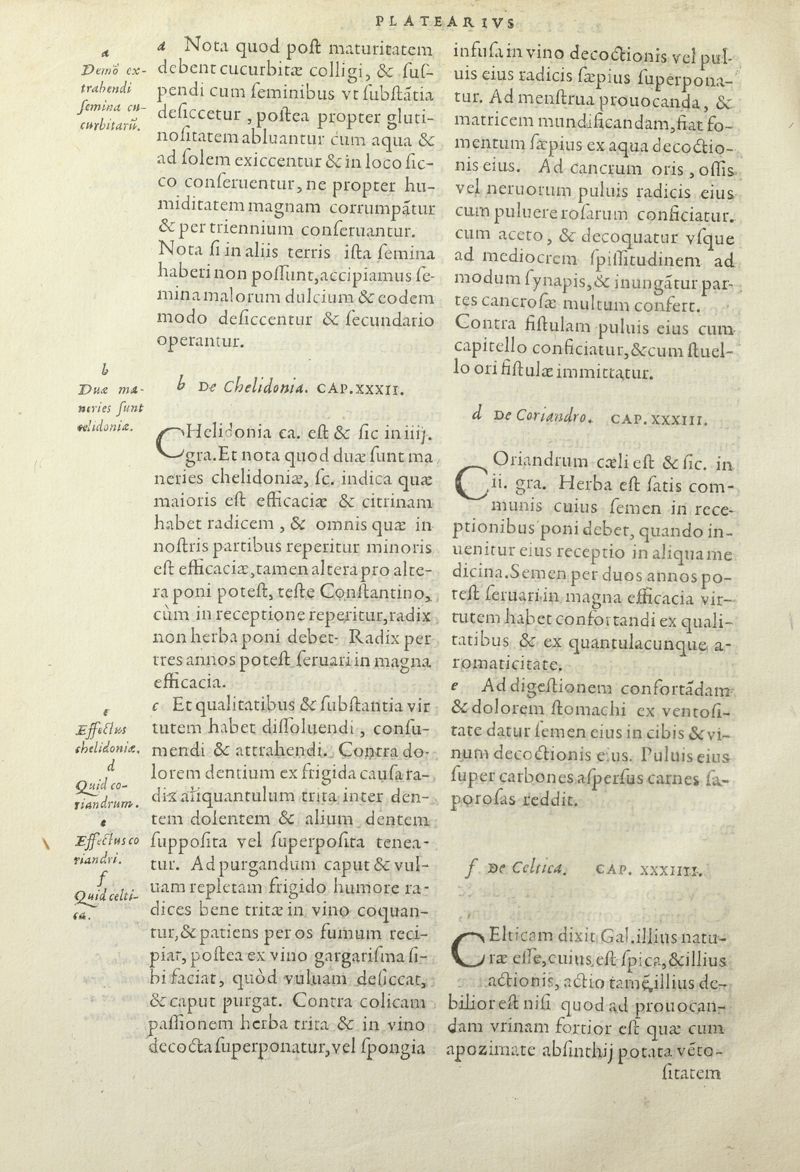 PLATEARIVS
a
Demō ex-
trahendi
semina cu-
curbitarū.
a Nota quod post maturitatem
debent cucurbitæ colligi, & sus-
pendi cum seminibus vt substātia
desiccetur, postea propter gluti-
nositatem abluantur cum aqua &
ad solem exiccentur & in loco sic-
co conseruentur, ne propter hu-
miditatem magnam corrumpātur
& per triennium conseruantur.
Nota si in aliis terris ista semina
haberi non possunt, accipiamus se-
mina malorum dulcium & eodem
modo desiccentur & secundario
operantur.
b
Duæ ma-
neries sunt
celidoniæ.
b De Chelidonia. CAP. XXXII.
CHelidonia ca. est & sic in iiij.
gra. Et nota quod duæ sunt ma
neries chelidoniæ, sc. indica quæ
maioris est efficaciæ & citrinam
habet radicem, & omnis quæ in
nostris partibus reperitur minoris
est efficaciæ, tamen altera pro alte-
ra poni potest, teste Constantino,
cùm in receptione reperitur, radix
non herba poni debet. Radix per
tres annos potest seruari in magna
efficacia.
c
Effectus
chelidoniæ.
d
Quid co-
riandrum.
e
Effectus co
riandri.
f
Quid celti-
ca.
c Et qualitatibus & substantia vir
tutem habet dissoluendi, consu-
mendi & attrahendi. Contra do-
lorem dentium ex frigida causa ra-
dix aliquantulum trita inter den-
tem dolentem & alium dentem
supposita vel superposita tenea-
tur. Ad purgandum caput & vul-
uam repletam frigido humore ra-
dices bene tritæ in vino coquan-
tur, & patiens per os fumum reci-
piat, postea ex vino gargarisma si-
bi faciat, quòd vuluam desiccat,
& caput purgat. Contra colicam
passionem herba trita & in vino
decocta superponatur, vel spongia
infusa in vino decoctionis vel pul-
uis eius radicis sæpius superpona-
tur. Ad menstrua prouocanda, &
matricem mundificandam, fiat fo-
mentum sæpius ex aqua decoctio-
nis eius. Ad cancrum oris, ossis
vel neruorum puluis radicis eius
cum puluere rosarum conficiatur.
cum aceto, & decoquatur vsque
ad mediocrem spissitudinem ad
modum synapis, & inungātur par-
tes cancrosæ multum confert.
Contra fistulam puluis eius cum
capitello conficiatur, & cum stuel-
lo ori fistulæ immittatur.
d De Coriandro. CAP. XXXIII.
COriandrum cæli est & sic. in
ii. gra. Herba est satis com-
munis cuius semen in rece-
ptionibus poni debet, quando in-
uenitur eius receptio in aliqua me
dicina. Semen per duos annos po-
test seruari in magna efficacia vir-
tutem habet confortandi ex quali-
tatibus & ex quantulacunque a-
romaticitate.
e Ad digestionem confortādam
& dolorem stomachi ex ventosi-
tate datur semen eius in cibis & vi-
num decoctionis eius. Puluis eius
super carbones aspersus carnes sa-
porosas reddit.
f De Celtica. CAP. XXXIIII.
CElticam dixit Gal. illius natu-
ræ esse, cuius est spica, & illius
actionis, actio tamē illius de-
bilior est nisi quod ad prouocan-
dam vrinam fortior est quæ cum
apozimate absinthij potata vēto-
sitatem